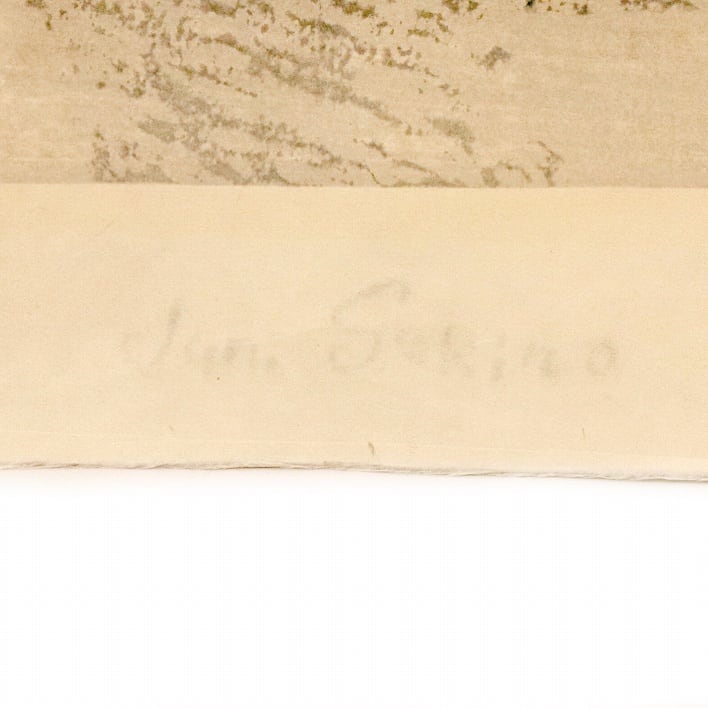 Jun. Sekino